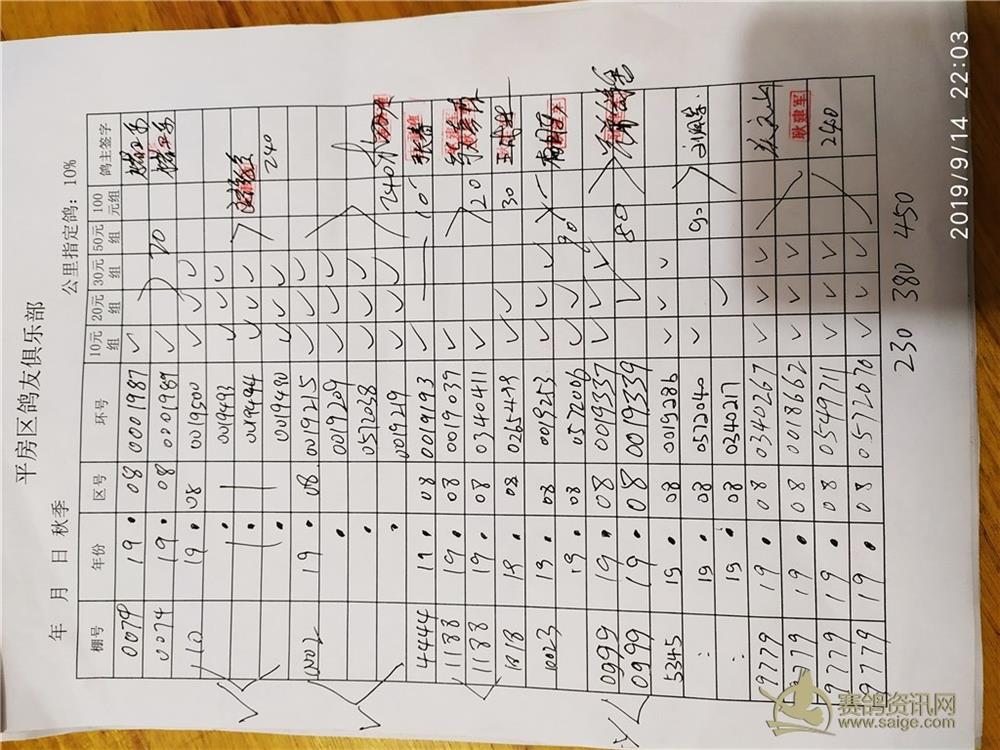 平房区鸽友俱乐部
年 月 日 秋季 公里指定鸽: 10%
棚号 年份 区号 环号 10元组 20元组 30元组 50元组 100元组 鸽主签字
0074 19 08 0001987 ✓
0074 19 08 0001989 ✓ 20
110 19 08 0019500 ✓ ✓ ✓
0019493 ✓ ✓ ✓
0019494 ✓ ✓ ✓ 240
0019490 ✓ ✓ ✓
1002 19 08 0019215 ✓ ✓ ✓
0019209 ✓ ✓ ✓
0572098 ✓ ✓ ✓
0019219 ✓ ✓ ✓ 240
4444 19 08 0019193 ✓ 10
1188 19 08 0019039 ✓
1188 19 08 0340411 ✓ 20
1818 19 08 ✓ ✓ 30
10023 19 08 0019253 ✓ ✓ ✓
19 08 0572006 ✓ ✓ ✓ 90
0099 19 08 0019337 ✓ ✓ ✓
0999 19 08 0019339 ✓ 80
5345 19 08 0019286 ✓ ✓ ✓
19 08 0572040 ✓ 90
19 08 0340217 ✓
9779 19 08 0340267 ✓ ✓ ✓
9779 19 08 0018662 ✓ ✓ ✓ 耿建军
9779 19 08 0549711 ✓ ✓ ✓ 240
9779 19 08 0572070 ✓ ✓ ✓
230 380 450
2019/9/14 22:03
赛鸽资讯网
www.saige.com